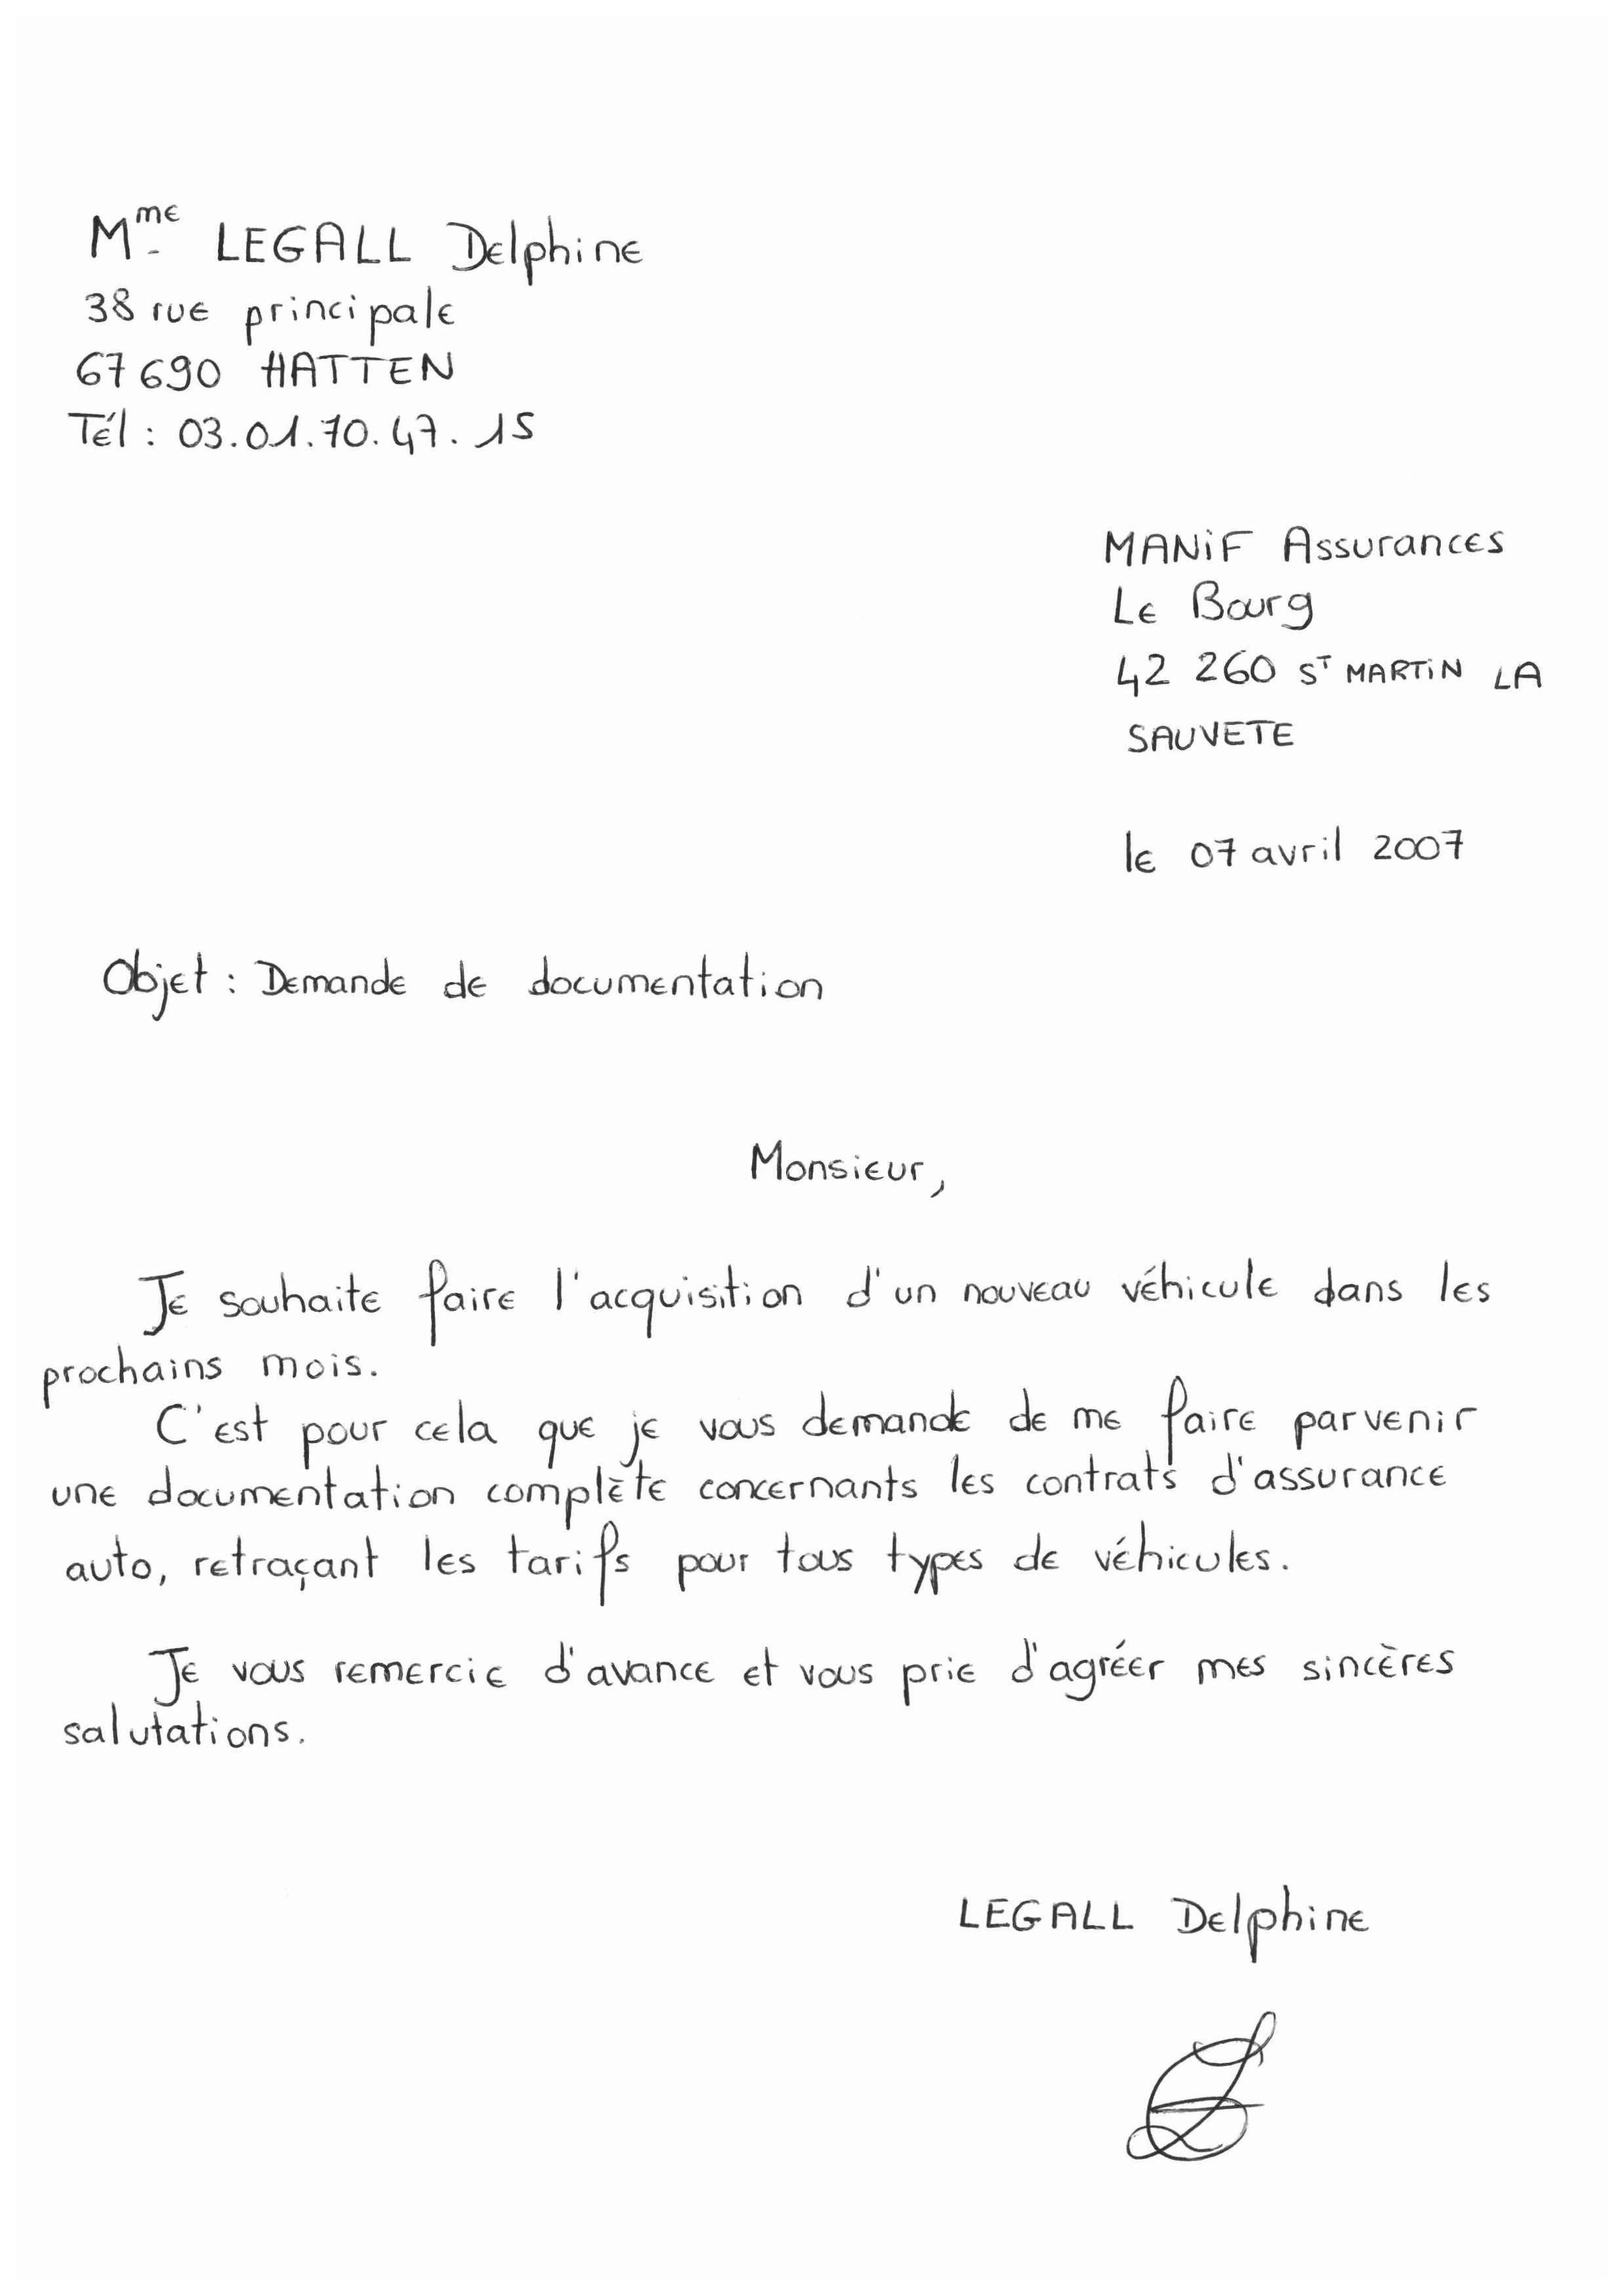 Mme LEGALL Delphine
38 rue principale
67690 HATTEN
Tél : 03.01.70.47.15
MANiF Assurances
Le Bourg
42 260 ST MARTiN LA
SAUVETE
le 07 avril 2007
Objet : Demande de documentation
Monsieur,
Je souhaite faire l'acquisition d'un nouveau véhicule dans les
prochains mois.
C'est pour cela que je vous demande de me faire parvenir
une documentation complète concernants les contrats d'assurance
auto, retraçant les tarifs pour tous types de véhicules.
Je vous remercie d'avance et vous prie d'agréer mes sincères
salutations.
LEGALL Delphine